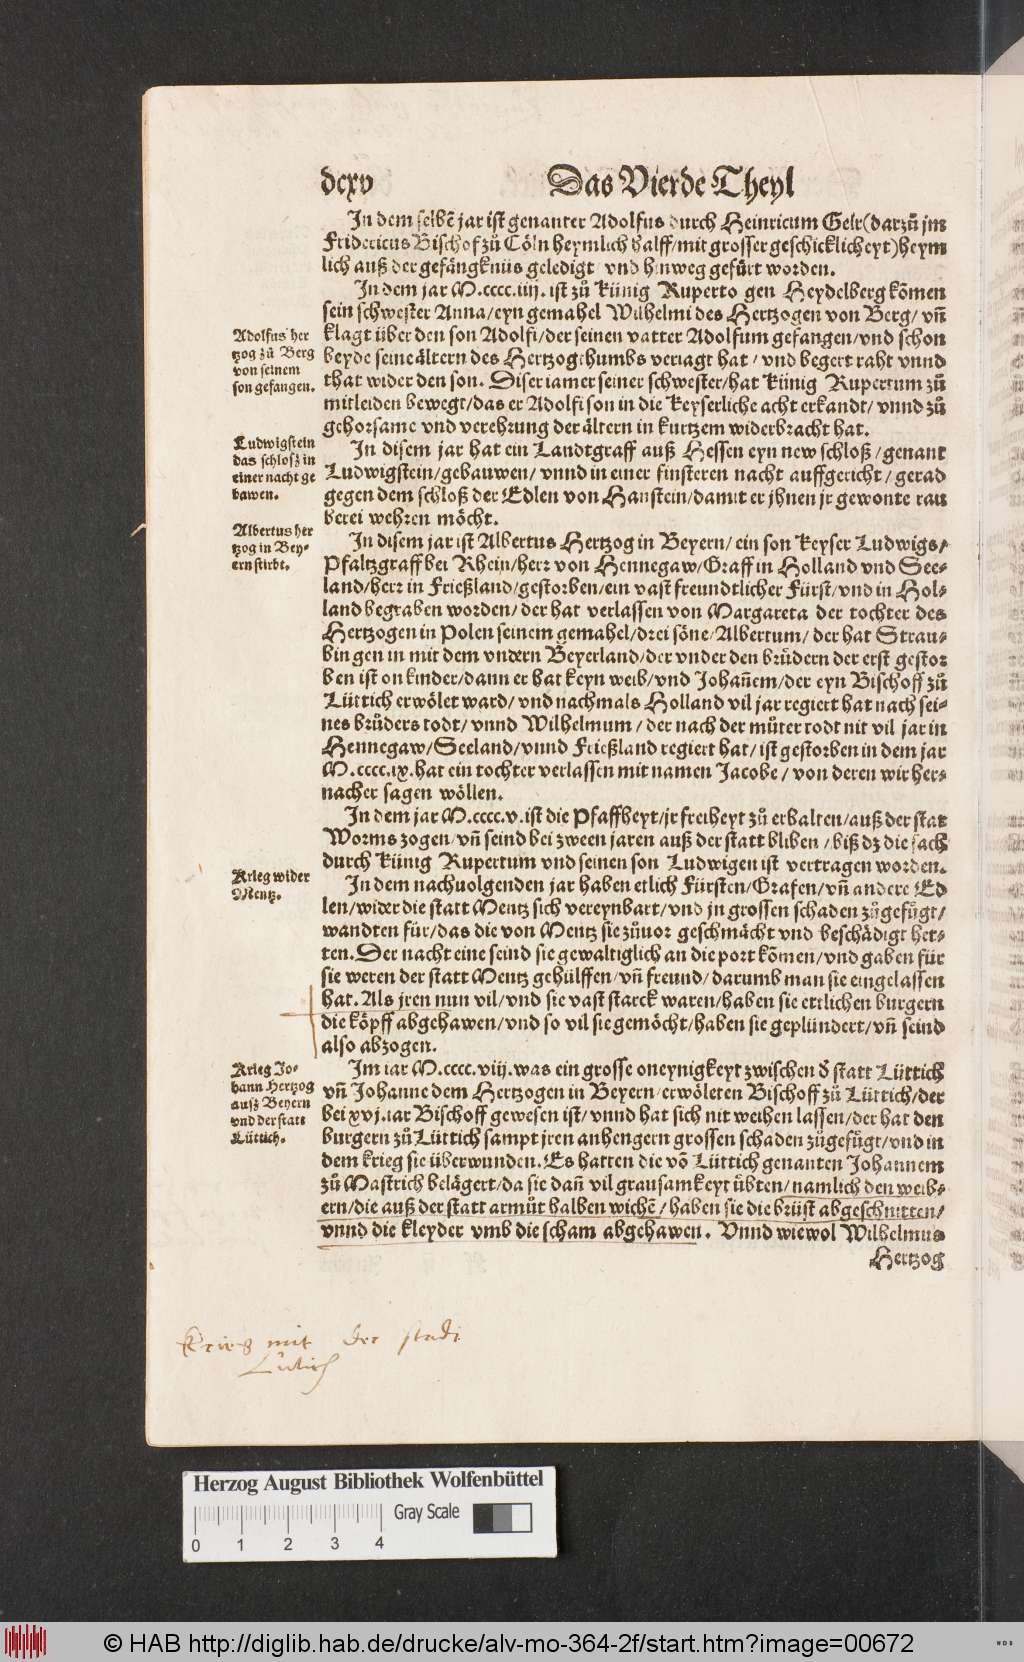 dcxv Das Vierde Theyl
In dem selbē jar ist genanter Adolfus durch Heinricum Gelr(darzů jm
Fridericus Bischof zů Cöln heymlich halff/mit grosser geschicklicheyt)heym
lich auß der gefängknüs geledigt/vnd hinweg gefürt worden.
In dem jar M.cccc.iiij. ist zů Künig Ruperto gen Heydelberg kōmen
sein schwester Anna/eyn gemahel Wilhelmi des Hertzogen von Berg/vñ
klagt über den son Adolfi/der seinen vatter Adolfum gefangen/vnd schon
beyde seine ältern des Hertzogthumbs veriagt hat/vnd begert raht vnnd
that wider den son. Diser iamer seiner schwester/hat Künig Rupertum zů
mitleiden bewegt/das er Adolfi son in die Keyserliche acht erkandt/vnnd zů
gehorsame vnd verehrung der ältern in kurtzem widerbracht hat.
In disem jar hat ein Landtgraff auß Hessen eyn new schloß/genant
Ludwigstein/gebauwen/vnnd in einer finsteren nacht auffgericht/gerad
gegen dem schloß der Edlen von Hanstein/damit er jhnen jr gewonte rau
berei wehren möcht.
In disem jar ist Albertus Hertzog in Beyern/ein son Keyser Ludwigs/
Pfaltzgraff bei Rhein/herr von Hennegaw/Graff in Holland vnd See-
land/herr in Frießland/gestorben/ein vast freundtlicher Fürst/vnd in Hol-
land begraben worden/der hat verlassen von Margareta der tochter des
Hertzogen in Polen seinem gemahel/drei söne/Albertum/der hat Strau-
bingen in mit dem vndern Beyerland/der vnder den brüdern der erst gestor
ben ist on kinder/dann er hat keyn weib/vnd Johañem/der eyn Bischoff zů
Lüttich erwölet ward/vnd nachmals Holland vil jar regiert hat nach sei-
nes brüders todt/vnnd Wilhelmum/der nach der můter todt nit vil jar in
Hennegaw/Seeland/vnnd Frießland regiert hat/ist gestorben in dem jar
M.cccc.ix.hat ein tochter verlassen mit namen Jacobe/von deren wir her-
nacher sagen wöllen.
In dem jar M.cccc.v.ist die Pfaffheyt/jr freiheyt zů erhalten/auß der stat
Worms zogen/vñ seind bei zween jaren auß der statt bliben/biß dz die sach
durch Künig Rupertum vnd seinen son Ludwigen ist vertragen worden.
In dem nachuolgenden jar haben etlich Fürsten/Grafen/vñ andere Ed
len/wider die statt Mentz sich vereynbart/vnd jn grossen schaden zůgefůgt/
wandten für/das die von Mentz sie zůuor geschmächt vnd beschädigt het-
ten.Der nacht eine seind sie gewaltiglich an die port kōmen/vnd gaben für
sie weren der statt Mentz gehülffen/vñ freund/darumb man sie eingelassen
hat.Als jren nun vil/vnd sie vast starck waren/haben sie ettlichen burgern
die köpff abgehawen/vnd so vil sie gemöcht/haben sie geplündert/vñ seind
also abzogen.
Im iar M.cccc.viij.was ein grosse oneynigkeyt zwischen d̕ statt Lüttich
vñ Johanne dem Hertzogen in Beyern/erwöleten Bischoff zů Lüttich/der
bei xvj.iar Bischoff gewesen ist/vnnd hat sich nit weihen lassen/der hat den
burgern zů Lüttich sampt jren anhengern grossen schaden zůgefůgt/vnd in
dem krieg sie überwunden.Es hatten die vō Lüttich genanten Johannem
zů Mastrich belägert/da sie dañ vil grausamkeyt übten/namlich den weib-
ern/die auß der statt armůt halben wichē/haben sie die brüst abgeschnitten/
vnnd die kleyder vmb die scham abgehawen. Vnnd wiewol Wilhelmus
Hertzog
Adolfus her
tzog zů Berg
von seinem
son gefangen.
Ludwigstein
das schlosz in
einer nacht ge
bawen.
Albertus her
tzog in Bey-
ern stirbt.
Krieg wider
Mentz.
Krieg Jo-
hann Hertzog
ausz Beyern
vnd der statt
Lüttich.
Krieg mit der stadt
Lutich
Herzog August Bibliothek Wolfenbüttel
Gray Scale
0 1 2 3 4
© HAB http://diglib.hab.de/drucke/alv-mo-364-2f/start.htm?image=00672